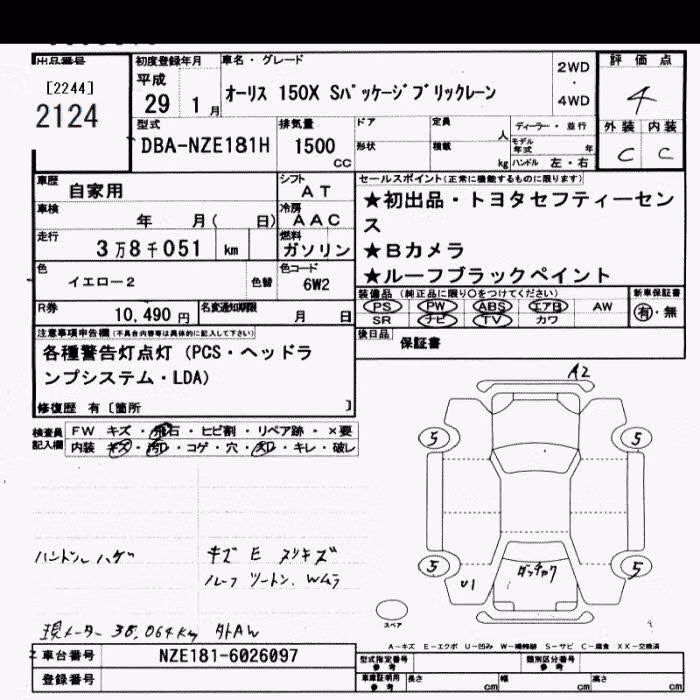 出品番号
[2244]
2124
初度登録年月
平成
29 1月
車名・グレード
オーリス 150X Sパッケージブリックレーン
2WD
・
4WD
評価点
4
外装 内装
C C
型式
DBA-NZE181H
排気量
1500
CC
ドア
形状
定員
人
積載
kg
ディーラー・並行
モデル年式 年
ハンドル 左・右
車歴
自家用
シフト
AT
車検
年 月( 日)
冷房
AAC
走行
3万8千051 km
燃料
ガソリン
色
イエロー2
色替
色コード
6W2
R券
10,490 円
名変通知期限
月 日
セールスポイント(正常に機能するものに限ります)
★初出品・トヨタセフティーセン
ス
★Bカメラ
★ルーフブラックペイント
装備品 (純正品に限り○をつけてください)
PS PW ABS エアB AW
SR ナビ TV カワ
新車保証書
有・無
後日品
保証書
注意事項申告欄 (不具合内容等は具体的に記入して下さい)
各種警告灯点灯 (PCS・ヘッドラ
ンプシステム・LDA)
修復歴 有 [箇所 ]
検査員記入欄
FW キズ・飛石・ヒビ割・リペア跡・×要
内装 キズ・汚れ・コゲ・穴・スレ・キレ・破レ
ハンドル ハゲ
キズ E ヌリキズ
ルーフ ツートン Wムラ
現メーター 38,064km 外AW
A2
5 5
5 5
U1
ダッチャク
スペア
A-キズ E-エクボ U-凹み W-補修跡 S-サビ C-腐食 XX-交換済
車台番号
NZE181-6026097
登録番号
型式指定番号 参考
類別区分番号 参考
車庫証明用 参考
長さ cm 幅 cm 高さ cm